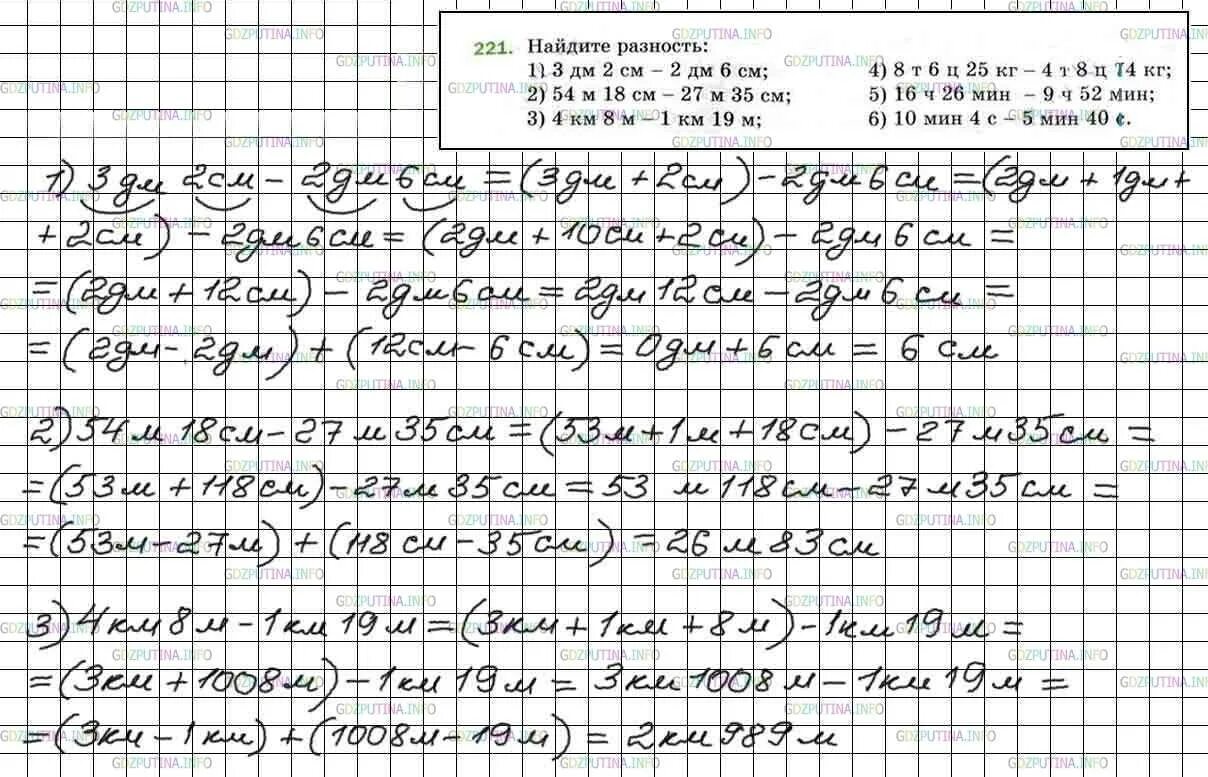 221. Найдите разность:
1) 3 дм 2 см – 2 дм 6 см;
2) 54 м 18 см – 27 м 35 см;
3) 4 км 8 м – 1 км 19 м;
4) 8 т 6 ц 25 кг – 4 т 8 ц 14 кг;
5) 16 ч 26 мин – 9 ч 52 мин;
6) 10 мин 4 с – 5 мин 40 с.
1) 3 дм 2 см – 2 дм 6 см = (3 дм + 2 см) – 2 дм 6 см = (2 дм + 1 дм +
+ 2 см) – 2 дм 6 см = (2 дм + 10 см + 2 см) – 2 дм 6 см =
= (2 дм + 12 см) – 2 дм 6 см = 2 дм 12 см – 2 дм 6 см =
= (2 дм – 2 дм) + (12 см – 6 см) = 0 дм + 6 см = 6 см
2) 54 м 18 см – 27 м 35 см = (53 м + 1 м + 18 см) – 27 м 35 см =
= (53 м + 118 см) – 27 м 35 см = 53 м 118 см – 27 м 35 см =
= (53 м – 27 м) + (118 см – 35 см) = 26 м 83 см
3) 4 км 8 м – 1 км 19 м = (3 км + 1 км + 8 м) – 1 км 19 м =
= (3 км + 1008 м) – 1 км 19 м = 3 км 1008 м – 1 км 19 м =
= (3 км – 1 км) + (1008 м – 19 м) = 2 км 989 м
GDZPUTINA.INFO